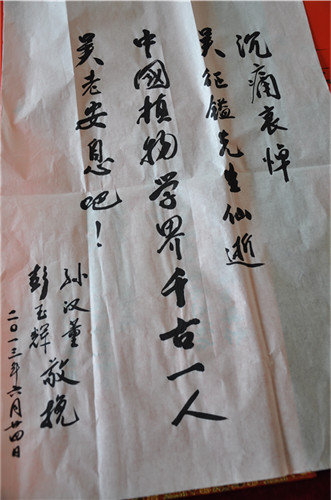 沉痛哀悼
吴征镒先生仙逝
中國植物学界千古一人
吴老安息吧！
孙汉董
彭玉辉敬挽
二〇一三年六月廿四日